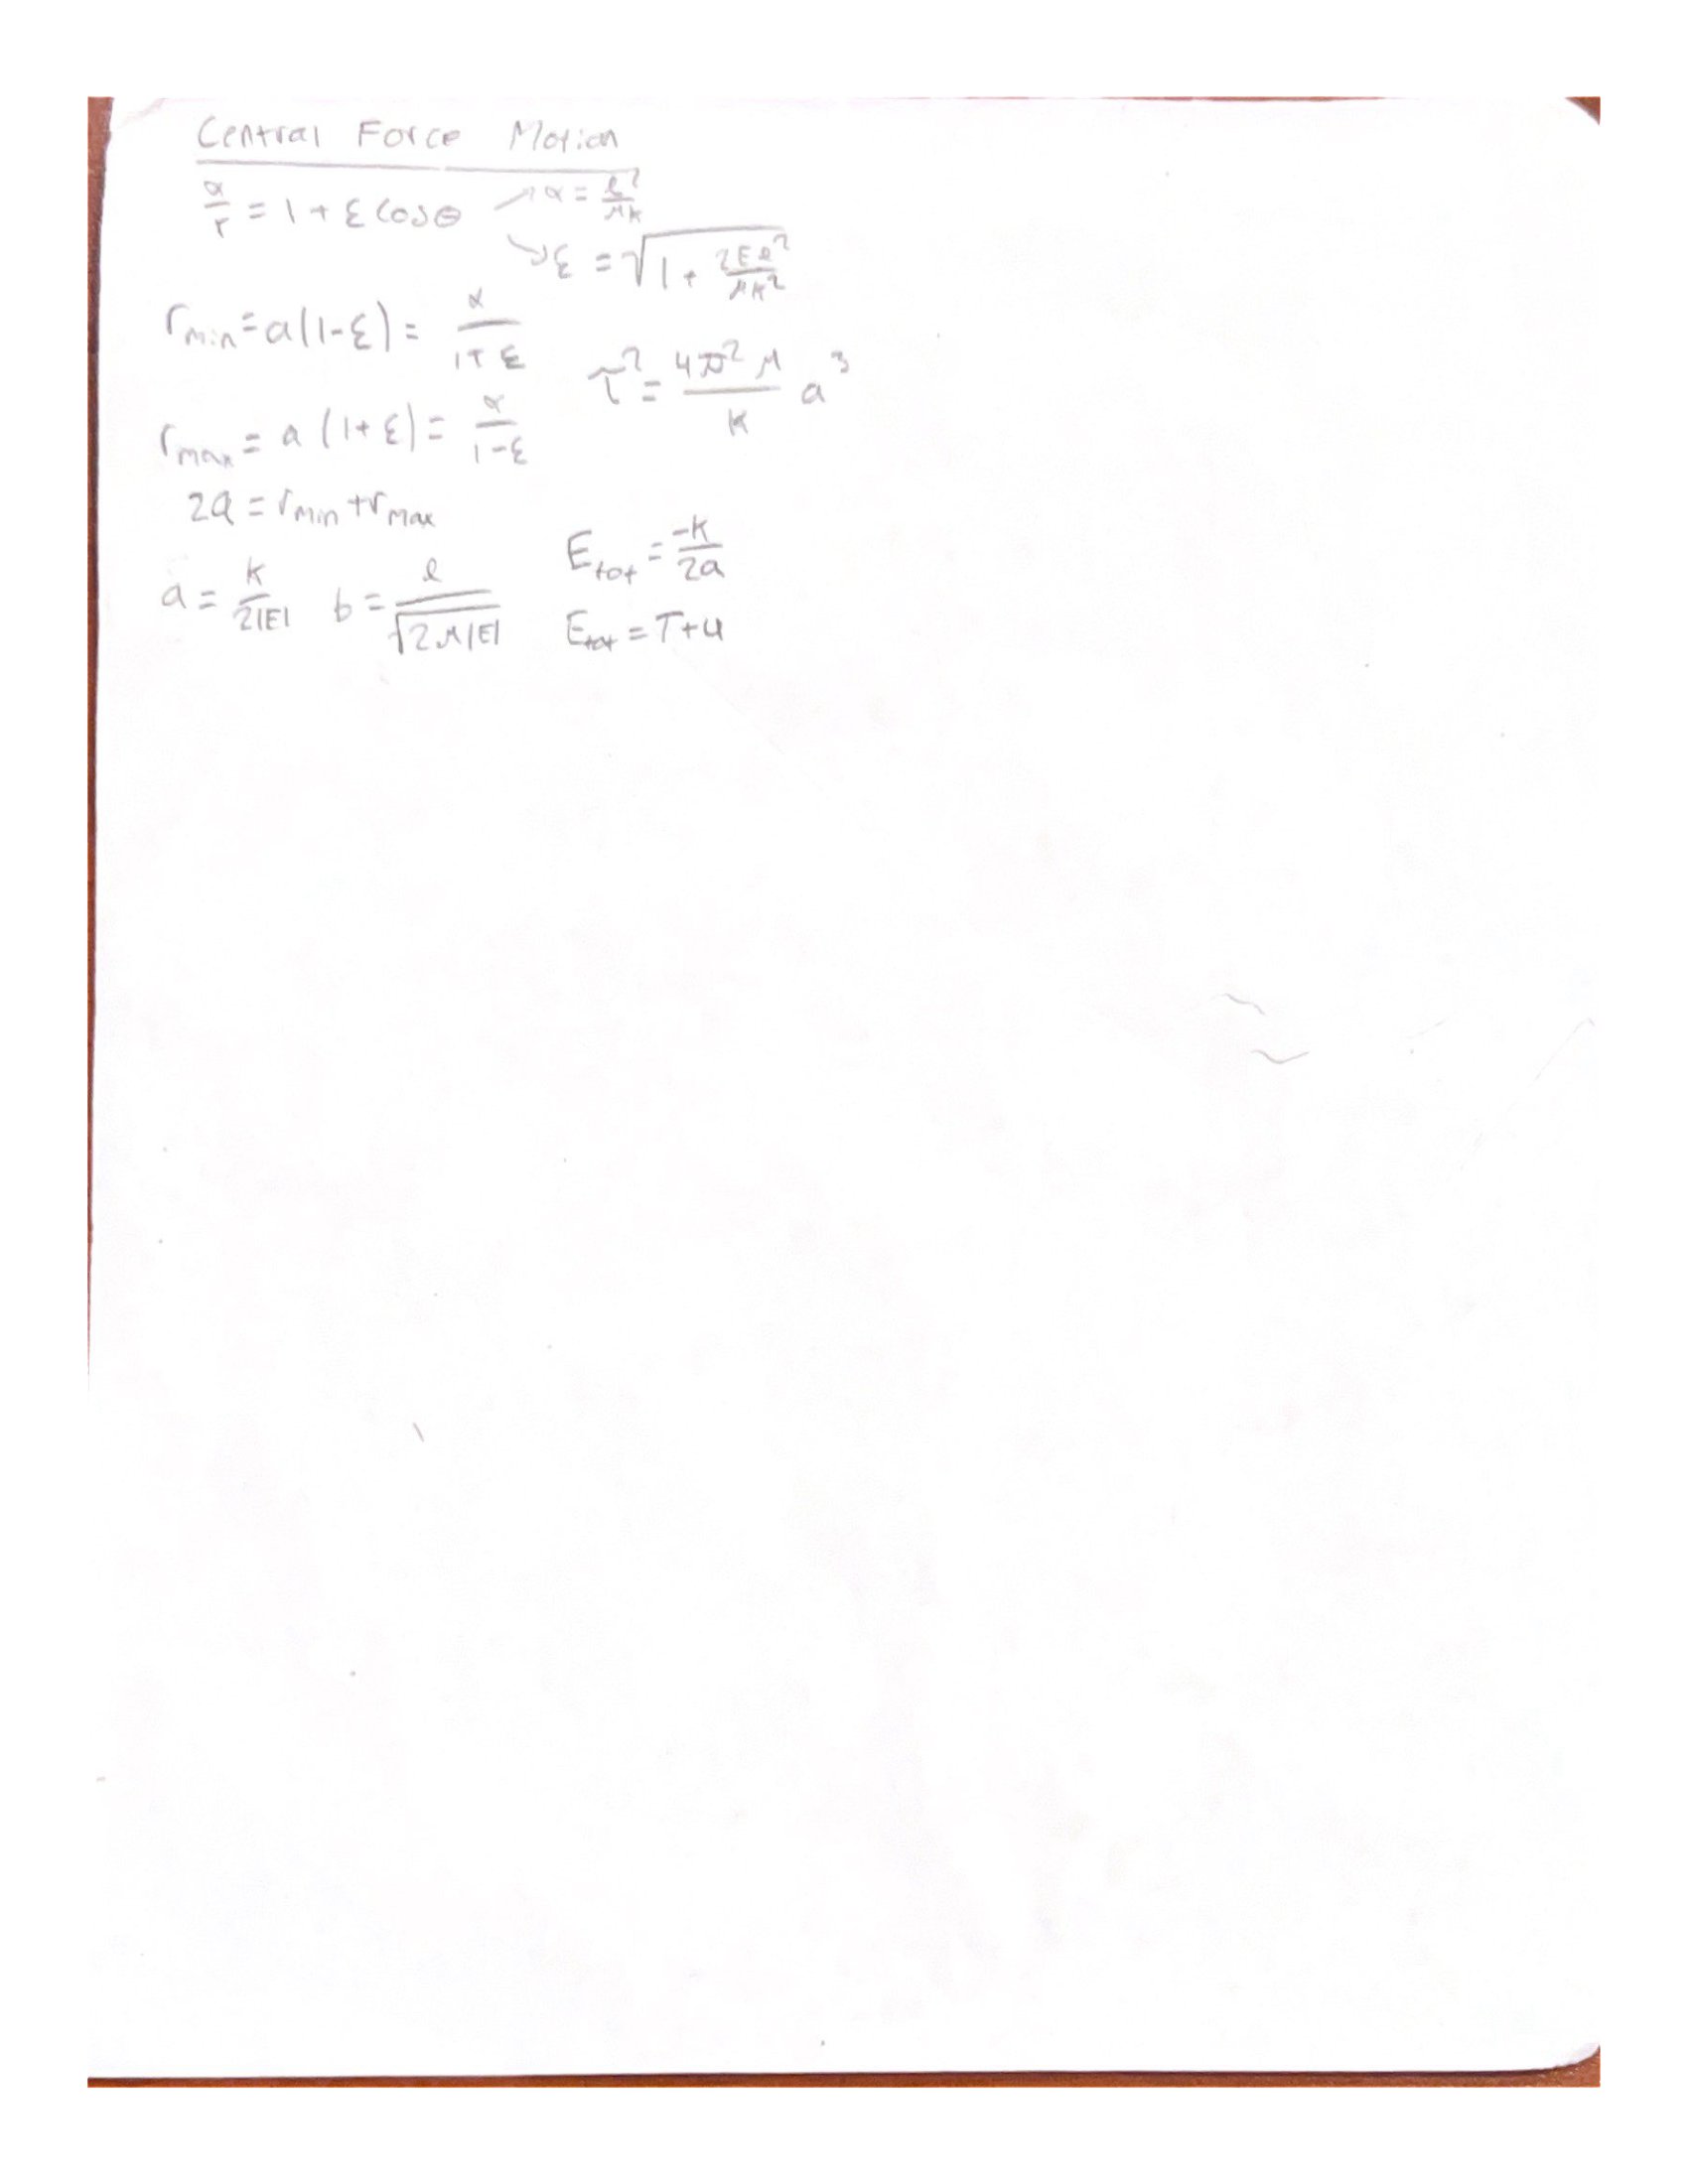 Central Force Motion
α/r = 1 + ε cosθ → α = ℓ²/μk
↘ ε = √(1 + 2Eℓ²/μk²)
r_min = a(1-ε) = α/(1+ε)
τ² = (4π²μ/k) a³
r_max = a(1+ε) = α/(1-ε)
2a = r_min + r_max
E_tot = -k/2a
a = k/2|E| b = ℓ/√(2μ|E|)
E_tot = T+U